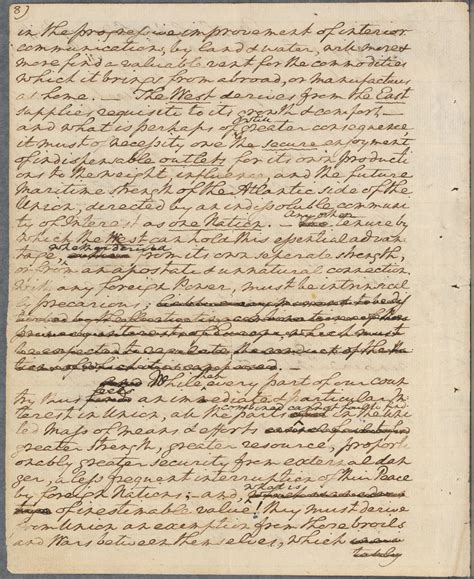 8)
in the progressive improvement of interior
communications, by land & water, will more &
more find a valuable vent for the commodities
which it brings from abroad, or manufactures
at home. — The West derives from the East
supplies requisite to its growth & comfort —
and what is perhaps of still greater consequence,
it must of necessity, owe the secure enjoyment
of indispensable outlets for its own productions
to the weight, influence, and the future
maritime strength of the Atlantic side of the
Union, directed by an indissoluble community
of Interest as one Nation. — Any other tenure by
which the West can hold this essential advantage,
whether derived from its own seperate strength,
or from an apostate & unnatural connection
with any foreign Power, must be intrinsically
precarious;
which must
be expected to the conduct of the
While then every part of our country
thus feels an immediate & particular Interest
in Union, all the parts combined cannot fail to find in the united
Mass of means & efforts
greater strength, greater resource, proportionably
greater security from external danger,
a less frequent interruption of their Peace
by foreign Nations; and, what is
of inestimable value! they must derive
from Union an exemption from those broils
and Wars between themselves, which